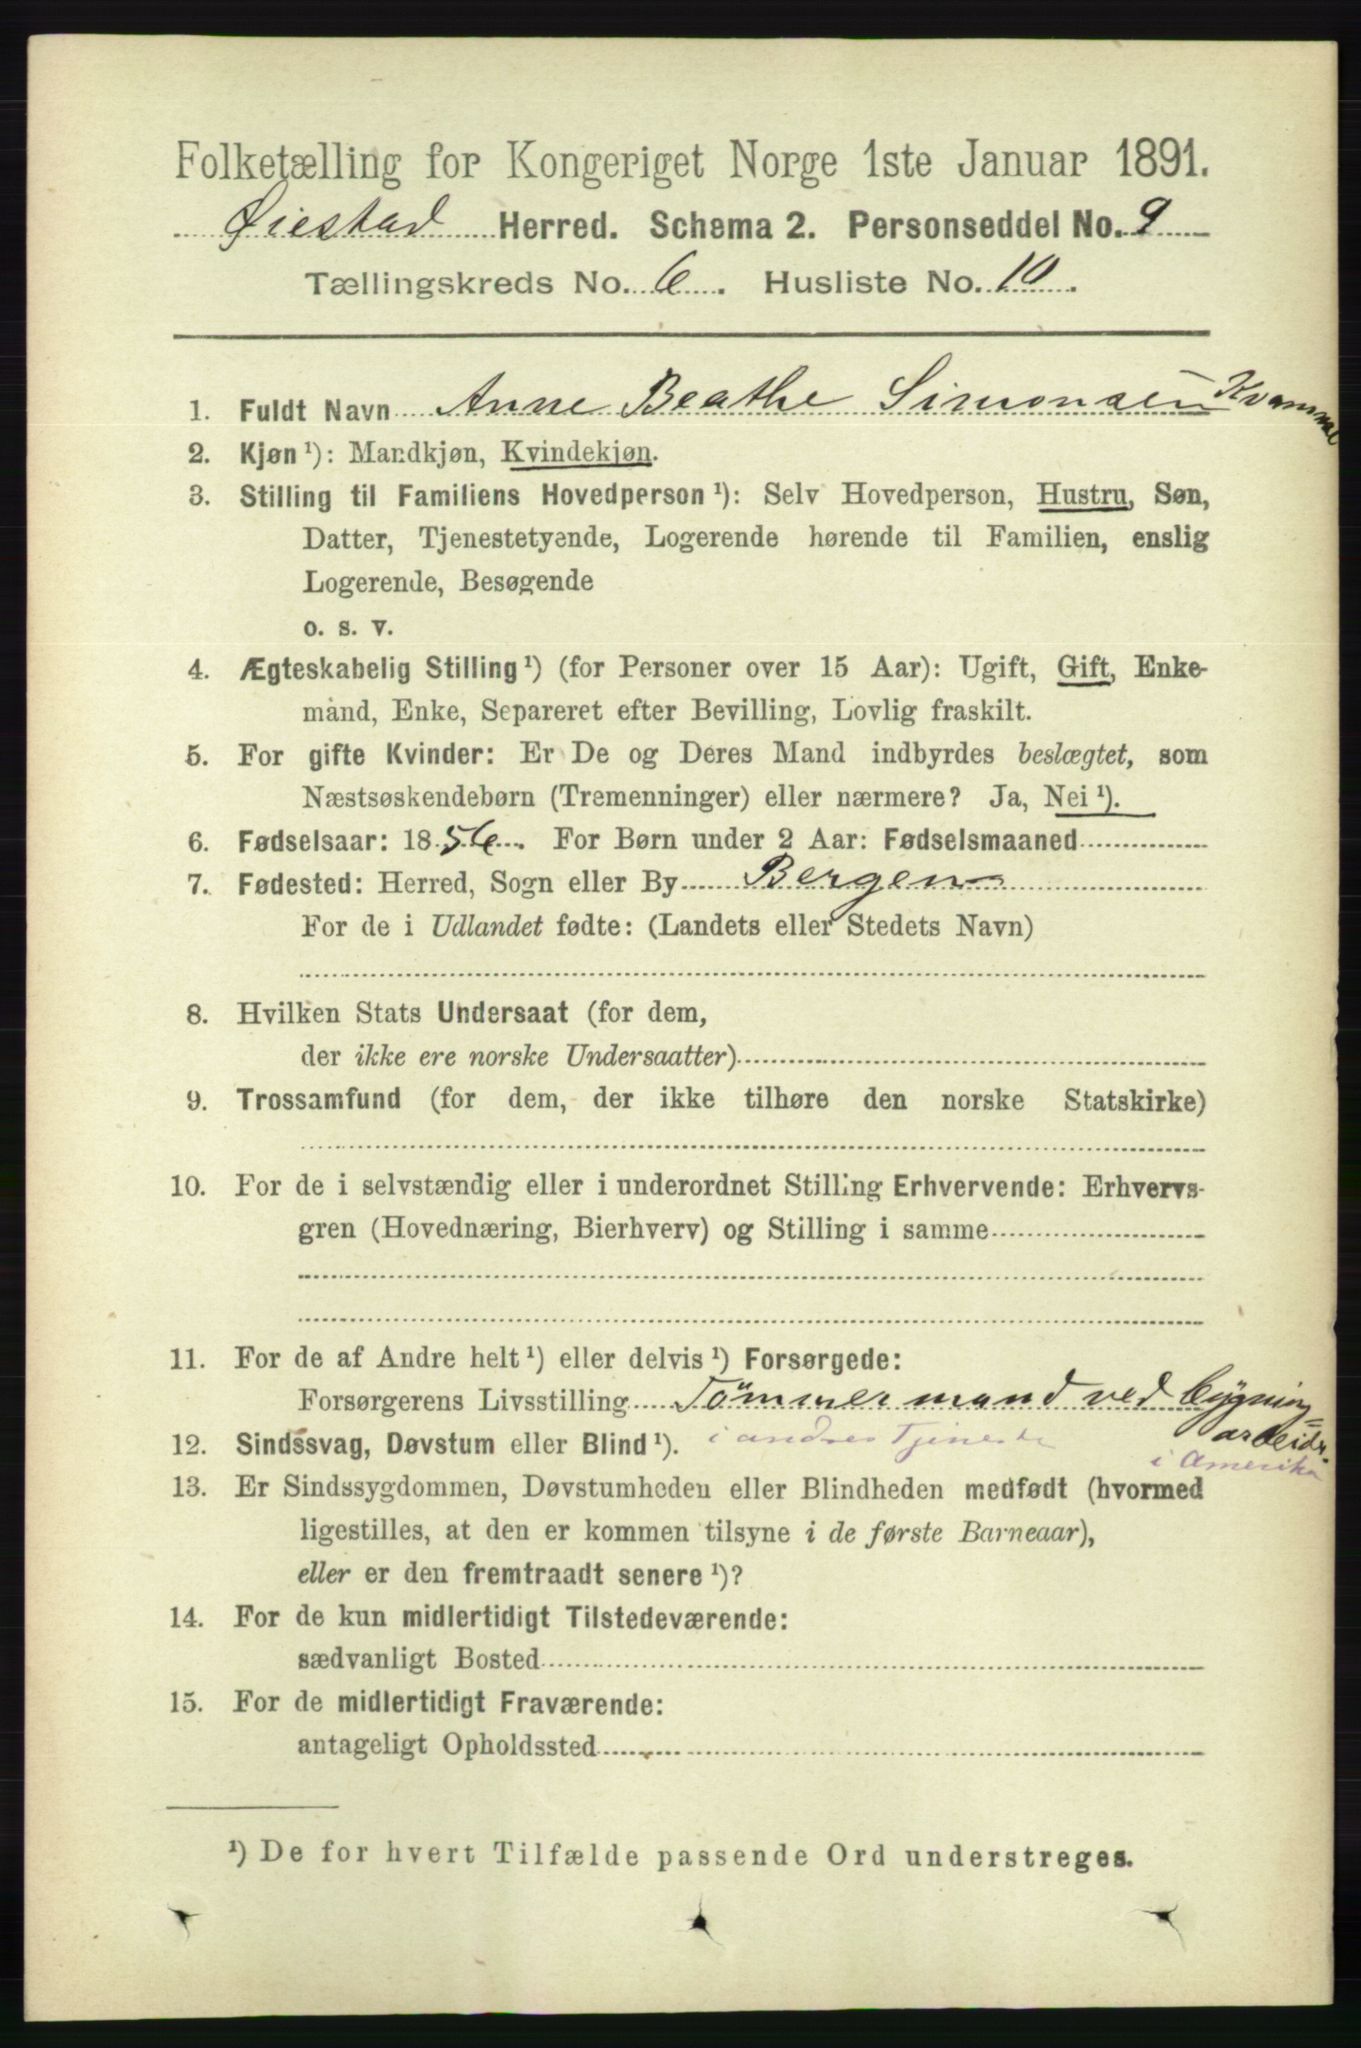 Folketælling for Kongeriget Norge 1ste Januar 1891.
Øiestad Herred. Schema 2. Personseddel No. 9
Tællingskreds No. 6. Husliste No. 10.
1. Fuldt Navn Anne Beathe Simonsen
2. Kjøn ¹): Mandkjøn, Kvindekjøn.
3. Stilling til Familiens Hovedperson ¹): Selv Hovedperson, Hustru, Søn,
Datter, Tjenestetyende, Logerende hørende til Familien, enslig
Logerende, Besøgende
o. s. v.
4. Ægteskabelig Stilling ¹) (for Personer over 15 Aar): Ugift, Gift, Enke-
mand, Enke, Separeret efter Bevilling, Lovlig fraskilt.
5. For gifte Kvinder: Er De og Deres Mand indbyrdes beslægtet, som
Næstsøskendebørn (Tremenninger) eller nærmere? Ja, Nei ¹).
6. Fødselsaar: 1856. For Børn under 2 Aar: Fødselsmaaned
7. Fødested: Herred, Sogn eller By Bergen
For de i Udlandet fødte: (Landets eller Stedets Navn)
8. Hvilken Stats Undersaat (for dem,
der ikke ere norske Undersaatter)
9. Trossamfund (for dem, der ikke tilhøre den norske Statskirke)
10. For de i selvstændig eller i underordnet Stilling Erhvervende: Erhvervs-
gren (Hovednæring, Bierhverv) og Stilling i samme
11. For de af Andre helt ¹) eller delvis ¹) Forsørgede:
Forsørgerens Livsstilling Tömmermand ved bygning=
arbeidr.
12. Sindssvag, Døvstum eller Blind ¹). i andres Tjeneste
i Amerika
13. Er Sindssygdommen, Døvstumheden eller Blindheden medfødt (hvormed
ligestilles, at den er kommen tilsyne i de første Barneaar),
eller er den fremtraadt senere ¹)?
14. For de kun midlertidigt Tilstedeværende:
sædvanligt Bosted
15. For de midlertidigt Fraværende:
antageligt Opholdssted
¹) De for hvert Tilfælde passende Ord understreges.